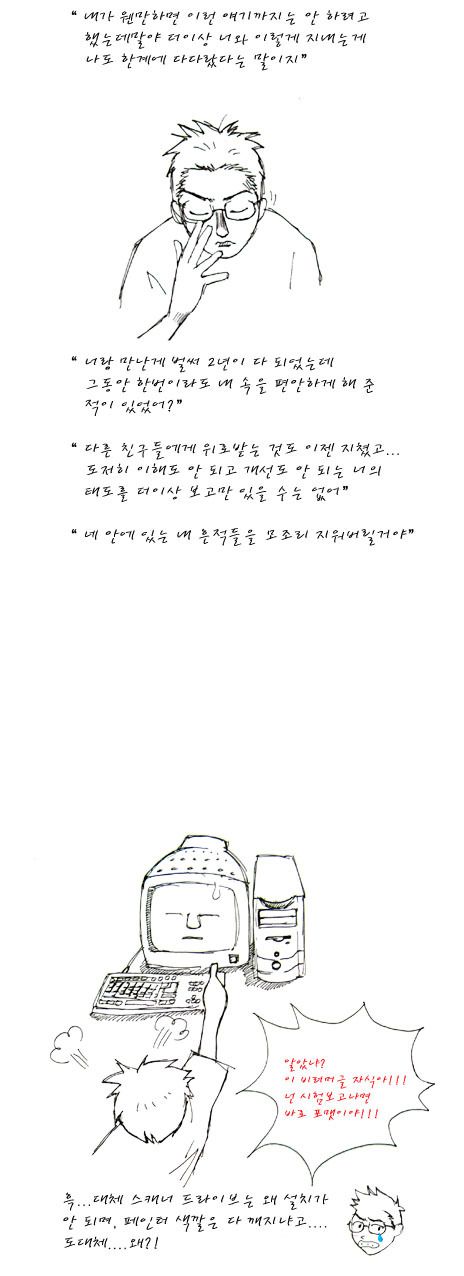 “ 내가 웬만하면 이런 얘기까지는 안 하려고
했는데말야 더이상 너와 이렇게 지내는게
나도 한계에 다다랐다는 말이지”
“ 너랑 만난게 벌써 2년이 다 되었는데
그동안 한번이라도 내 속을 편안하게 해 준
적이 있었어?”
“ 다른 친구들에게 위로받는 것도 이젠 지쳤고...
도저히 이해도 안 되고 개선도 안 되는 너의
태도를 더이상 보고만 있을 수는 없어”
“ 네 안에 있는 내 흔적들을 모조리 지워버릴거야”
알았냐?
이 비러머글 자식아!!!
넌 시험보고나면
바로 포맷이야!!!
흑...대체 스캐너 드라이브는 왜 설치가
안 되며, 페인터 색깔은 다 깨지냐고....
도대체....왜?!